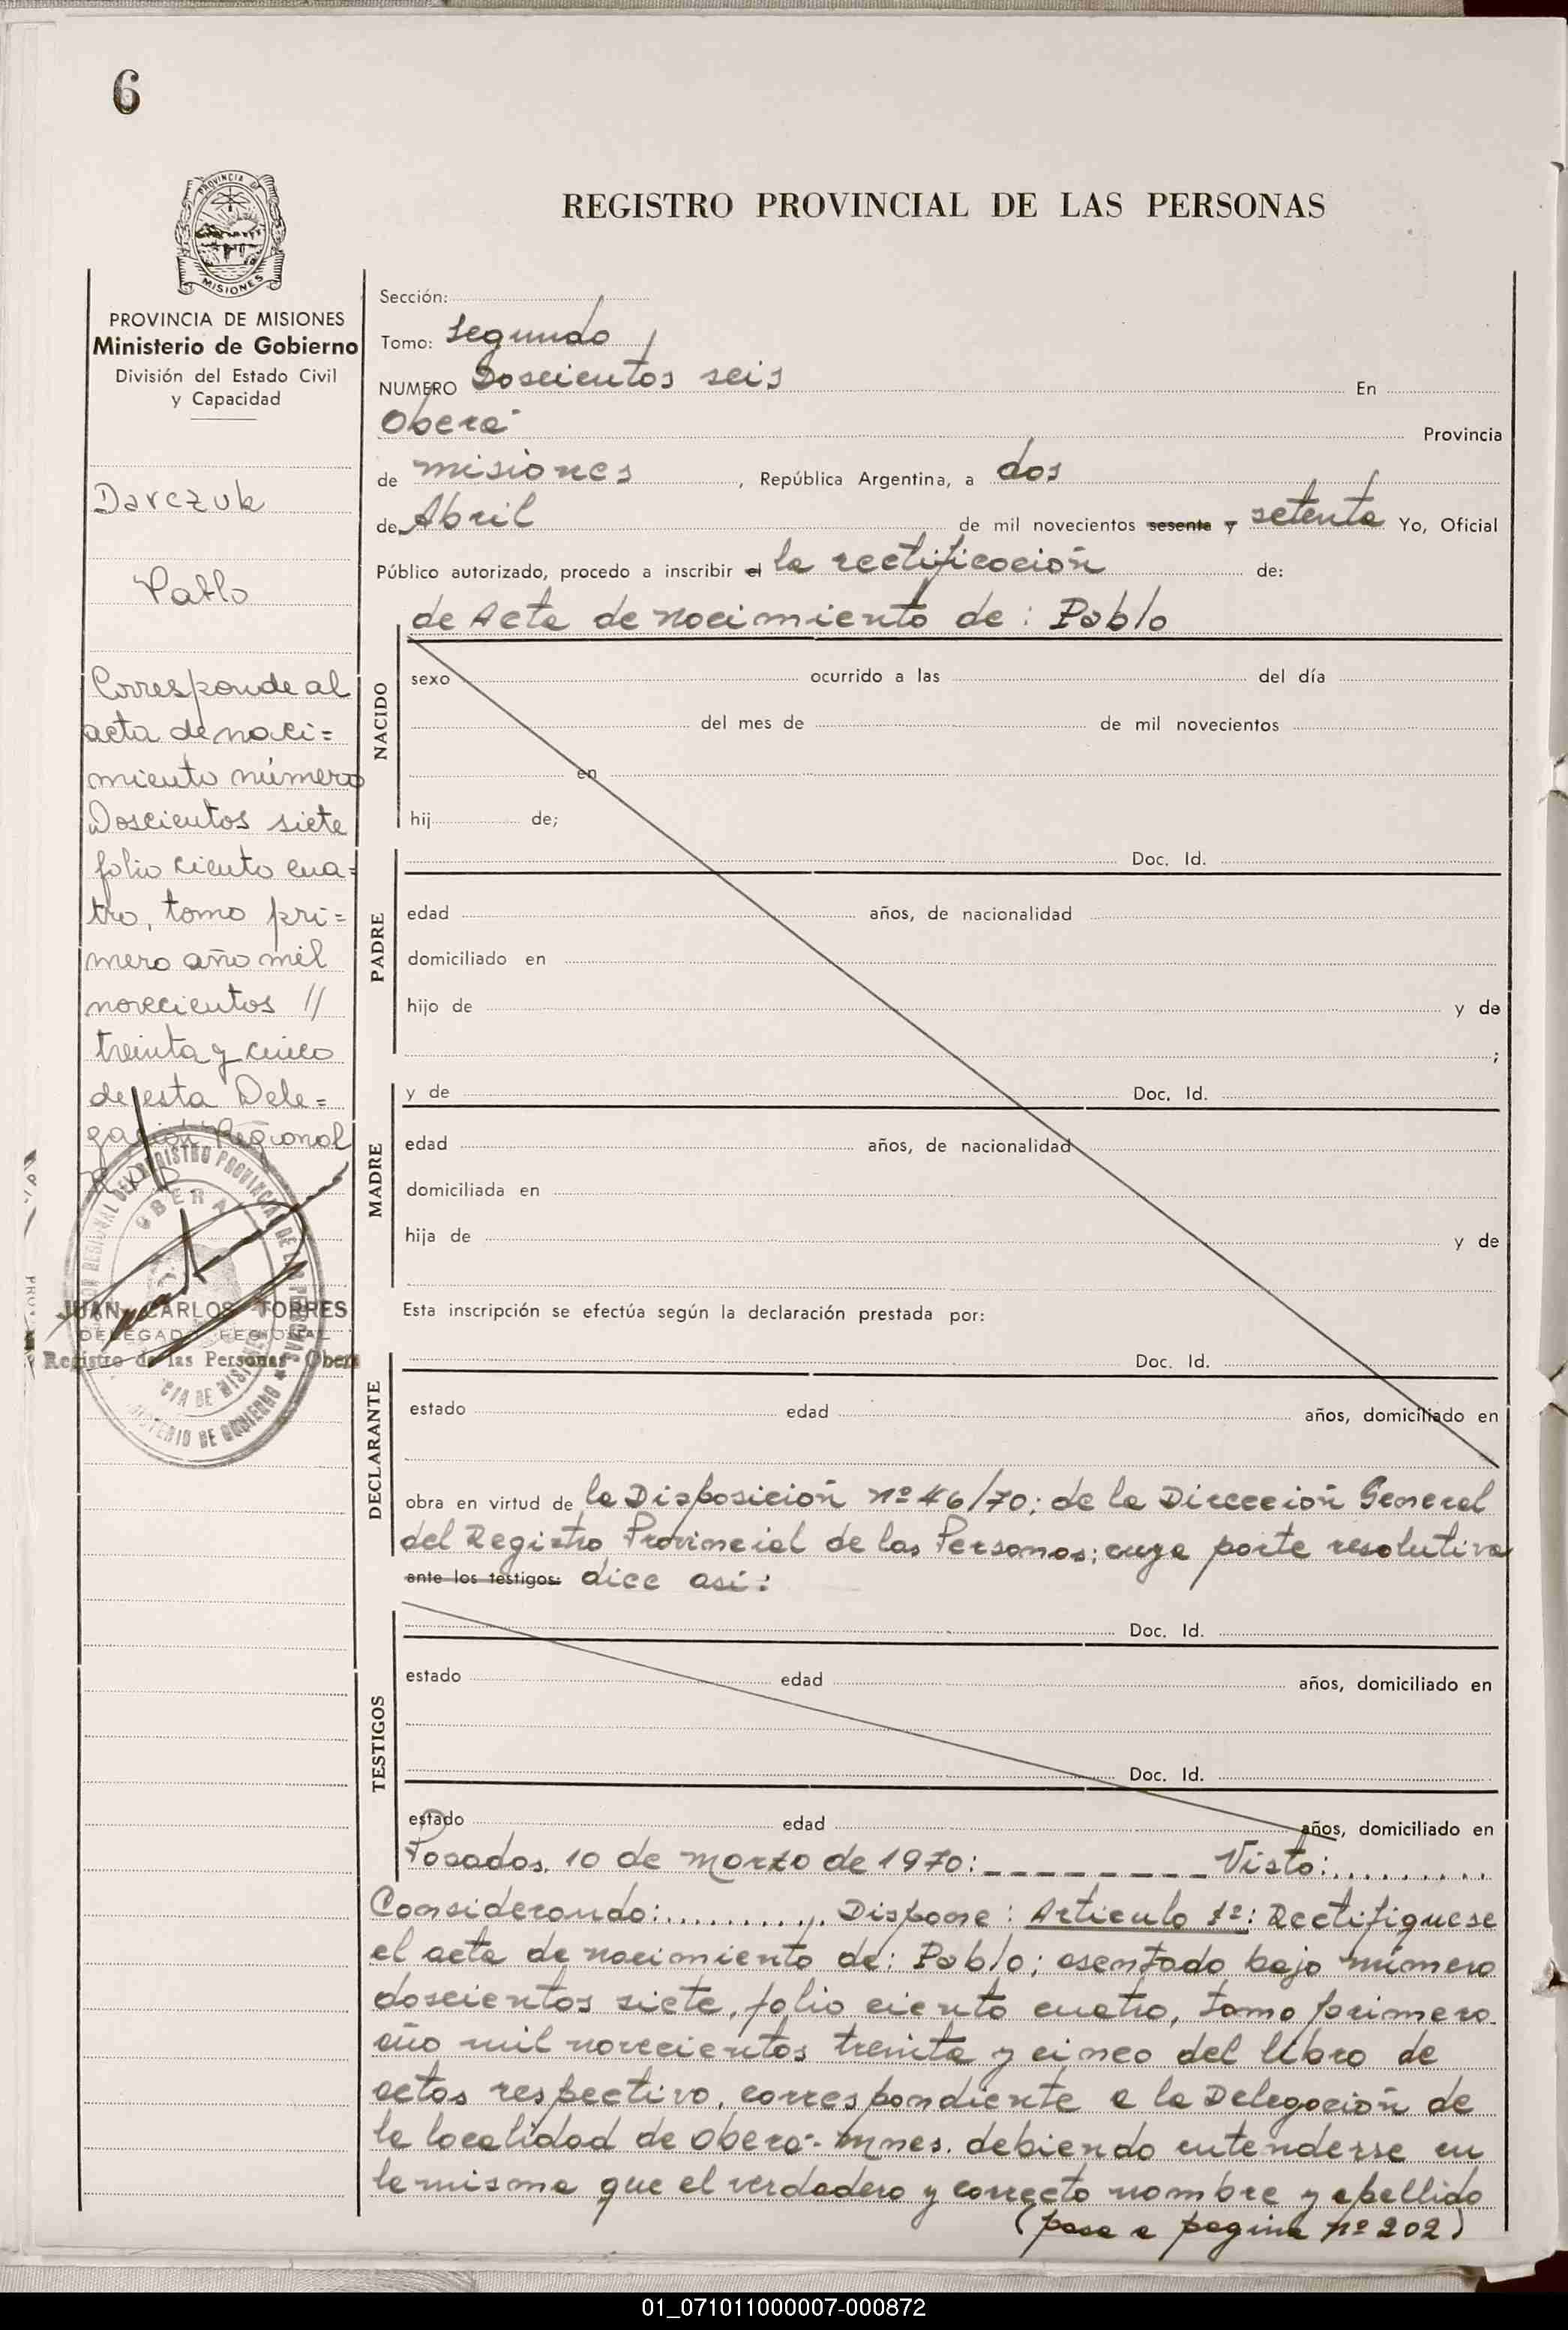 6
PROVINCIA DE
MISIONES
REGISTRO PROVINCIAL DE LAS PERSONAS
PROVINCIA DE MISIONES
Ministerio de Gobierno
División del Estado Civil
y Capacidad
Darczuk
Pablo
Corresponde al
acta de naci=
miento número
Doscientos siete
folio ciento cua=
tro, tomo pri=
mero año mil
novecientos //
treinta y cinco
de esta Dele=
gación Regional
OBERA
JUAN CARLOS TORRES
DELEGADO REGIONAL
Registro de las Personas - Obera
Sección:
Tomo: Segundo
NUMERO Doscientos seis En
Oberá Provincia
de misiones, República Argentina, a dos
de Abril de mil novecientos sesenta y setenta Yo, Oficial
Público autorizado, procedo a inscribir el la rectificación de:
de Acta de nacimiento de: Pablo
NACIDO
sexo ocurrido a las del día
del mes de de mil novecientos
en
hij de;
PADRE
Doc. Id.
edad años, de nacionalidad
domiciliado en
hijo de y de
;
MADRE
y de Doc. Id.
edad años, de nacionalidad
domiciliada en
hija de y de
Esta inscripción se efectúa según la declaración prestada por:
DECLARANTE
Doc. Id.
estado edad años, domiciliado en
obra en virtud de la Disposición nº 46/70; de la Dirección General
del Registro Provincial de las Personas; cuya parte resolutiva
ante los testigos: dice así:
TESTIGOS
Doc. Id.
estado edad años, domiciliado en
Doc. Id.
estado edad años, domiciliado en
Posadas, 10 de marzo de 1970: _ _ _ _ _ _ _ _ Visto: . . . . . . . . .
Considerando: . . . . . . . . . . Dispone: Artículo 1º: Rectifíquese
el acta de nacimiento de: Pablo; asentado bajo número
doscientos siete, folio ciento cuatro, tomo primero
año mil novecientos treinta y cinco del libro de
actas respectivo, correspondiente a la Delegación de
la localidad de Oberá- Mnes. debiendo entenderse en
la misma que el verdadero y correcto nombre y apellido
(pasa a pagina nº 202)
01_071011000007-000872